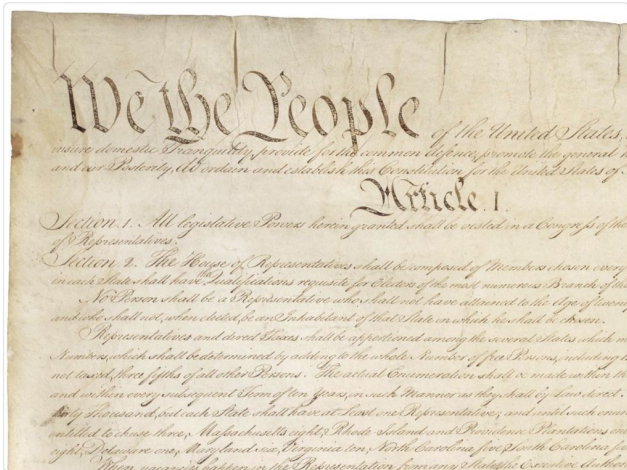 We the People of the United States,
insure domestic Tranquility, provide for the common defence, promote the general
and our Posterity, do ordain and establish this Constitution for the United States of
Article. I.
Section. 1. All legislative Powers herein granted shall be vested in a Congress of the
of Representatives.
Section. 2. The House of Representatives shall be composed of Members chosen every
in each State shall have the Qualifications requisite for Electors of the most numerous Branch of the
No Person shall be a Representative who shall not have attained to the Age of twenty
and who shall not, when elected, be an Inhabitant of that State in which he shall be chosen.
Representatives and direct Taxes shall be apportioned among the several States which
Numbers, which shall be determined by adding to the whole Number of free Persons, including
not taxed, three fifths of all other Persons. The actual Enumeration shall be made within
and within every subsequent Term of ten Years, in such Manner as they shall by Law direct.
thirty Thousand, but each State shall have at Least one Representative; and until such
entitled to chuse three, Massachusetts eight, Rhode-Island and Providence Plantations
eight, Delaware one, Maryland six, Virginia ten, North Carolina five, South Carolina
When vacancies happen in the Representation from any State, the Executive